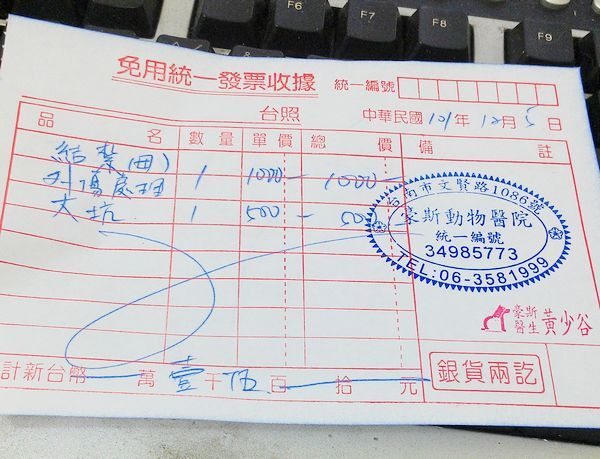 F6
F7
F8
F9
免用統一發票收據
統一編號
台照
中華民國 101年 12月 5日
品名 數量 單價 總價 備註
結紮(母) 1 1000— 1000—
外傷處理
大坑 1 500 — 500
台南市文賢路1086號
豪斯動物醫院
統一編號
34985773
TEL:06-3581999
豪斯
醫生 黃少谷
計新台幣 萬 壹 千 伍 百 拾 元
銀貨兩訖